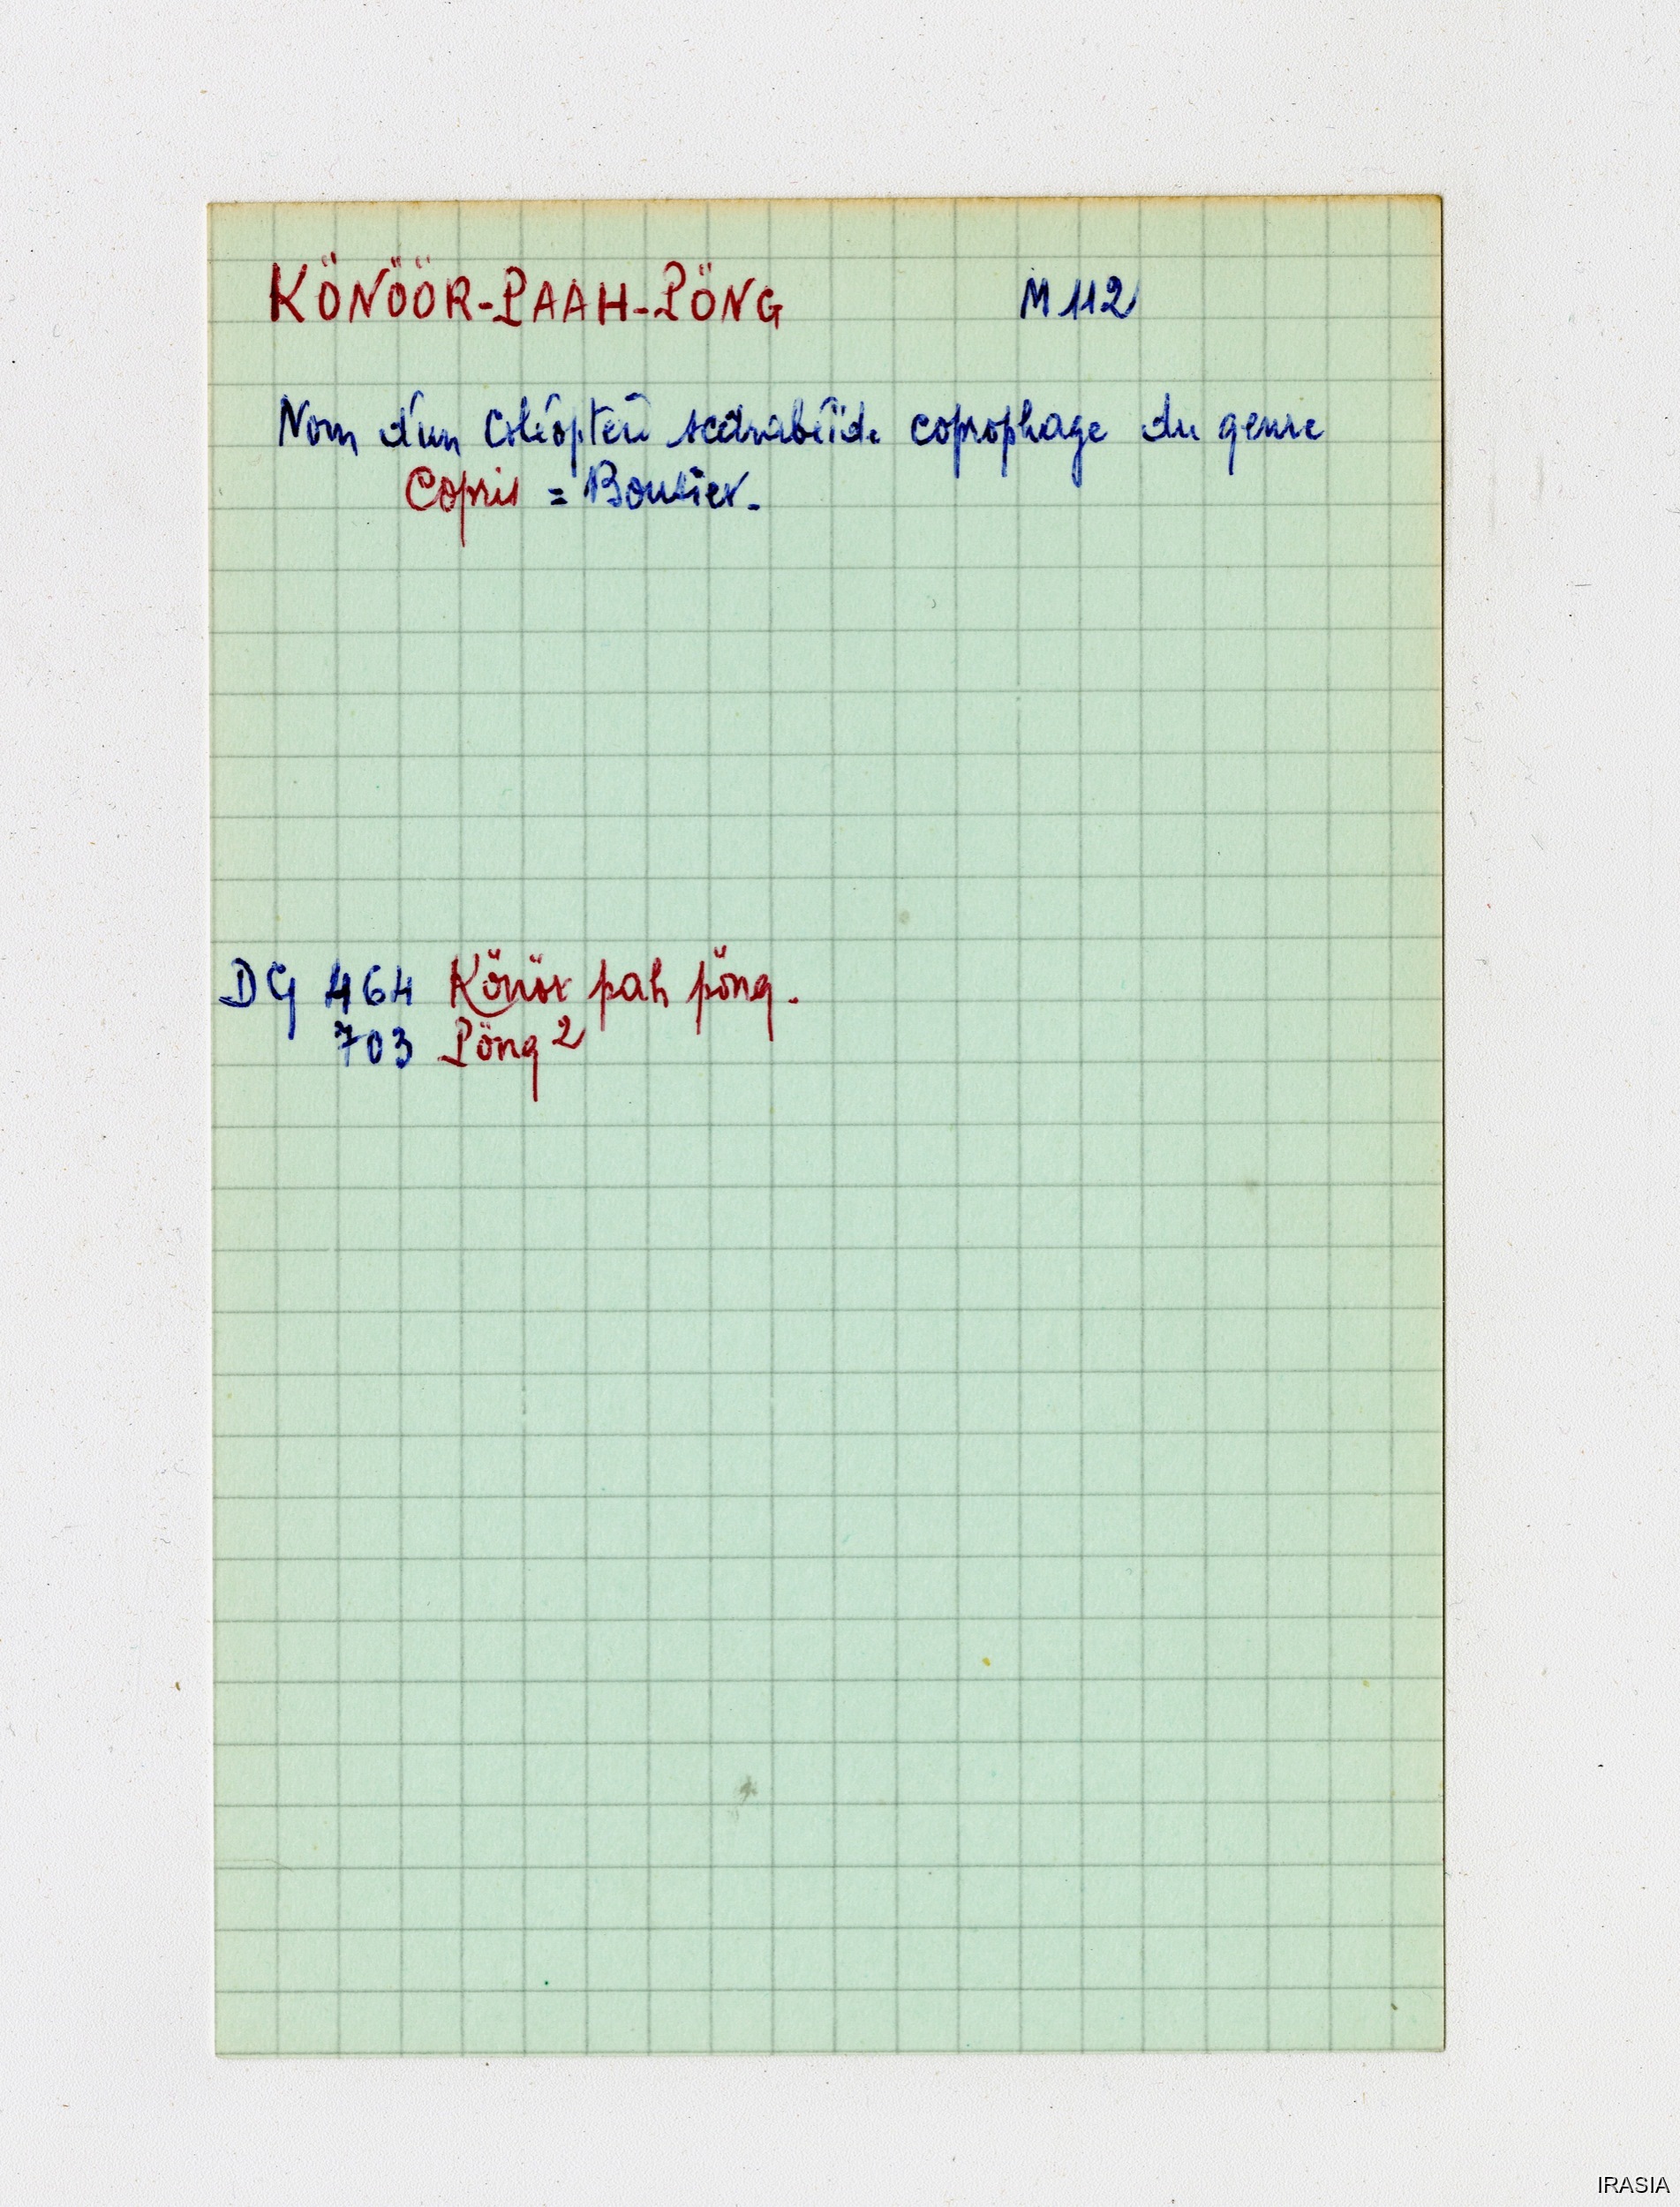 KÖNÖÖR-PAAH-PÖNG M 112
Nom d'un Coléoptère scarabéide coprophage du genre
Copris = Bousier.
DG 464 Könör pah pöng.
703 Pöng 2
IRASIA